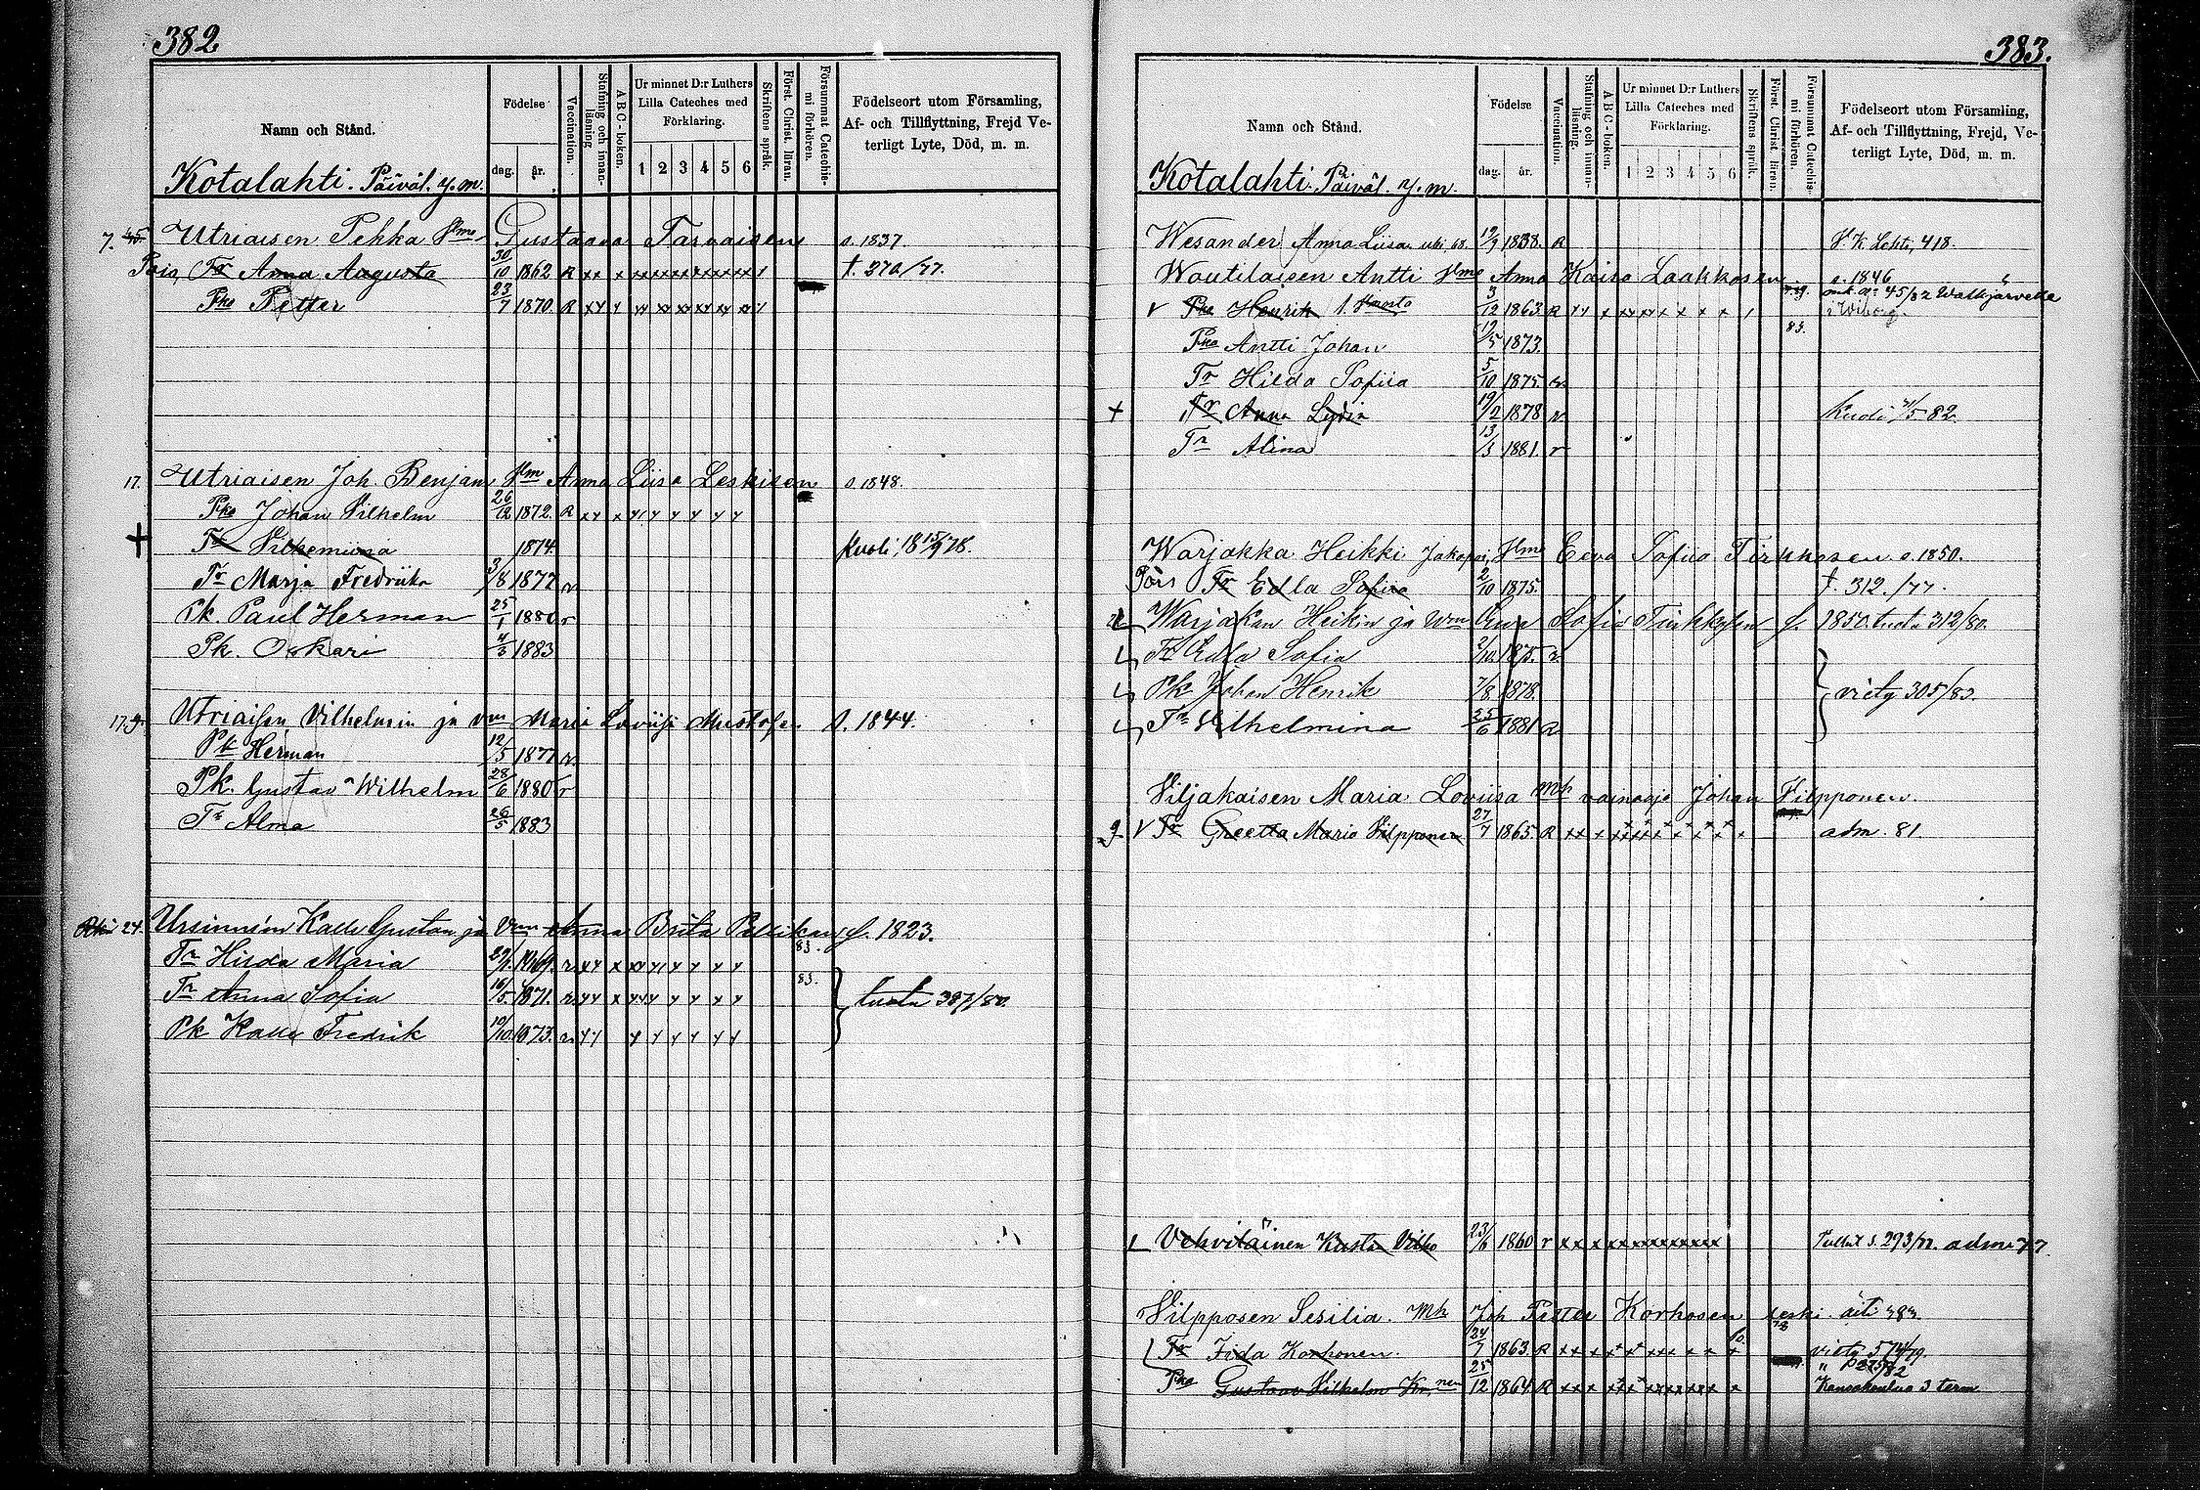 382
Namn och Stånd.
Födelse
dag. år.
Vaccination.
Stafning och innanläsning
ABC-boken.
Ur minnet D:r Luthers Lilla Cateches med Förklaring.
1 2 3 4 5 6
Skriftens språk.
Först. Christ. läran.
Försummat Catechismi förhören.
Födelseort utom Församling, Af- och Tillflyttning, Frejd Veterligt Lyte, Död, m. m.
Kotalahti. Päiväl. y. m.
7. 45 Utriaisen Pekka Gustaava Tarvaisen s. 1837
Pois, Tr Anna Augusta 30/10 1862 R t. 270/77.
Pka Petter 23/7 1870. R
17. Utriaisen Joh Benjam Anna Liisa Leskisen s. 1848.
Pka Johan Vilhelm 26/12 1872. R
+ Tr Vilhemiina 1874. kuoli 18 15/9 78.
Tr Marja Fredriika 3/8 1877 r
Pk. Paul Herman 25/1 1880 r
Pk. Oskari 4/3 1883
17. Utriaisen Vilhelmin ja vm Maria Loviisa Mustosen S. 1844.
Pk Herman 12/5 1877 r
Pk. Gustav Wilhelm 28/6 1880 r
Tr Alma 26/5 1883
24. Ursinuien Kalle Gustav ja Vm Anna Brita Pellikan f. 1823.
Tr Hilda Maria 1869. r 83.
Tr Anna Sofia 16/5 1871. r 83. tuotu 387/80.
Pk Kalle Fredrik 10/10 1873. r
383.
Namn och Stånd.
Födelse
dag. år.
Vaccination.
Stafning och innanläsning.
ABC-boken.
Ur minnet D:r Luthers Lilla Cateches med Förklaring.
1 2 3 4 5 6
Skriftens språk.
Först. Christ. läran.
Försummat Catechismi förhören.
Födelseort utom Församling, Af- och Tillflyttning, Frejd, Veterligt Lyte, Död, m. m.
Kotalahti. Päiväl. y. m.
Wesander Anna Liisa 12/9 1838. R Lehti, 418.
Woutilaisen Antti Anna Kaisa Laakkosen s. 1846
Pka Henrik 3/12 1863. R 45/82 Walkjärvelle Wiborg.
Pka Antti Johan 12/5 1873. 83.
Tr Hilda Sofiia 5/10 1875. r
+ Tr Anna Lydia 19/2 1878 r kuoli 5 82.
Tr Alina 13/3 1881. r
Warjakka Heikki Jakop. Eeva Sofia Tirkkosen s. 1850.
Pois Tr Edla Sofiia 2/10 1875. t. 312./77.
Warjakan Heikin ja Wm Eeva Sofia Tirkkosen f. 1850. tuotu 312/80.
Tr Edla Sofia 2/10. 1875. r
Pk Johan Henrik 7/8 1878. viety 305/83.
Tr Vilhelmina 25/6 1881 R
Viljakaisen Maria Loviisa Mh vainaaja Johan Vilpponen.
9 V Tr Greetta Maria Vilpponen 27/7 1865. R adm. 81.
Vehviläinen Kusta Vilho 23/6 1860 r Tullut s. 293/77. adm. 77.
Vilpposen Sesilia. Mh Joh Petter Korhosen leski. äiti 383.
Tr Iida Korhonen. 24/7 1863. R viety
Pka Gustaav Vilhelm 25/12 1864. R Kansakoulua 3 term